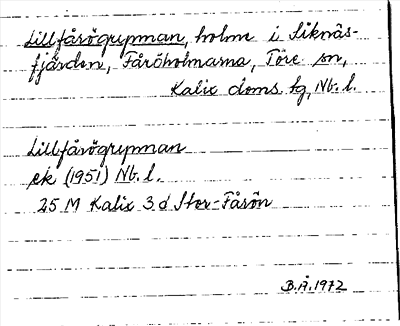 Lillfårögrupman, holme i Siknäs-
fjärden, Fåröholmarna, Töre sn,
Kalix doms. tg, Nb. l.
Lillfårögrupman
ek (1951) Nb. l.
25 M Kalix 3 d Stor-Fårön
B.Å. 1972